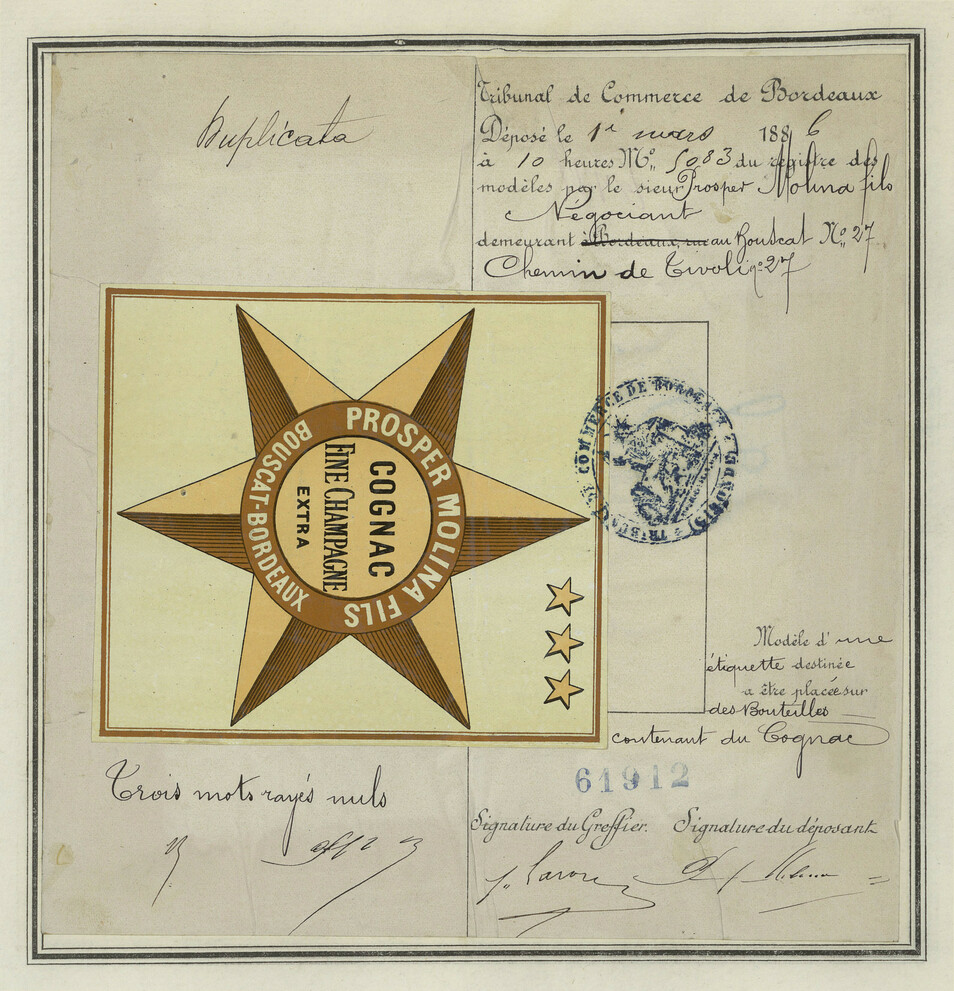 Duplicata
Tribunal de Commerce de Bordeaux
Déposé le 1er mars 1886
à 10 heures No. 5083 du registre des
modèles par le sieur Prosper Molina fils
Négociant
demeurant à Bordeaux, rue au Bouscat No. 27
Chemin de Tivoli no. 27
PROSPER MOLINA FILS
BOUSCAT-BORDEAUX
COGNAC
FINE CHAMPAGNE
EXTRA
TRIBUNAL DE COMMERCE DE BORDEAUX
Modèle d'une
étiquette destinée
a être placée sur
des Bouteilles
contenant du Cognac
61912
Trois mots rayés nuls
Signature du Greffier. Signature du déposant